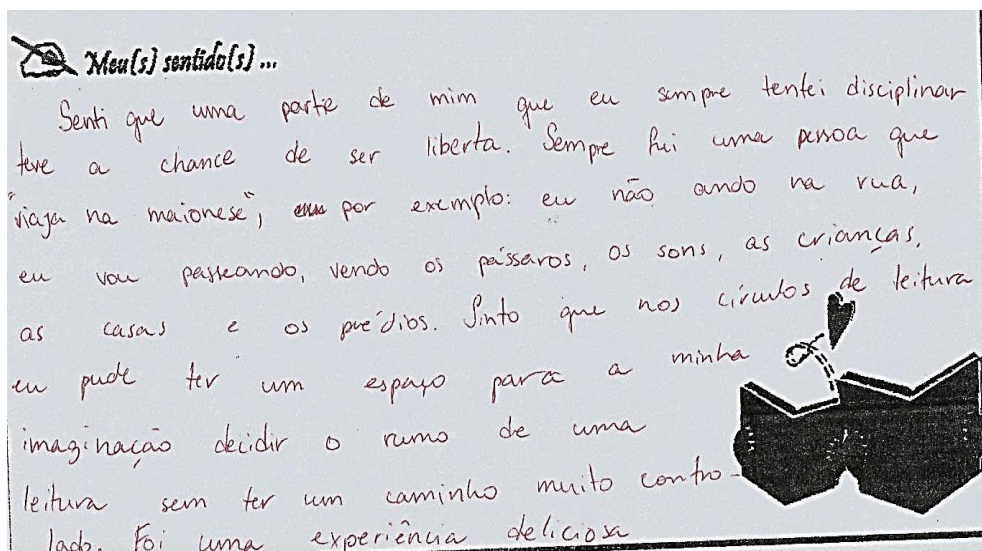 Meu(s) sentido(s)...
Senti que uma parte de mim que eu sempre tentei disciplinar
teve a chance de ser liberta. Sempre fui uma pessoa que
"viaja na maionese", por exemplo: eu não ando na rua,
eu vou passeando, vendo os pássaros, os sons, as crianças,
as casas e os prédios. Sinto que nos círculos de leitura
eu pude ter um espaço para a minha
imaginação decidir o rumo de uma
leitura sem ter um caminho muito contro-
lado. Foi uma experiência deliciosa